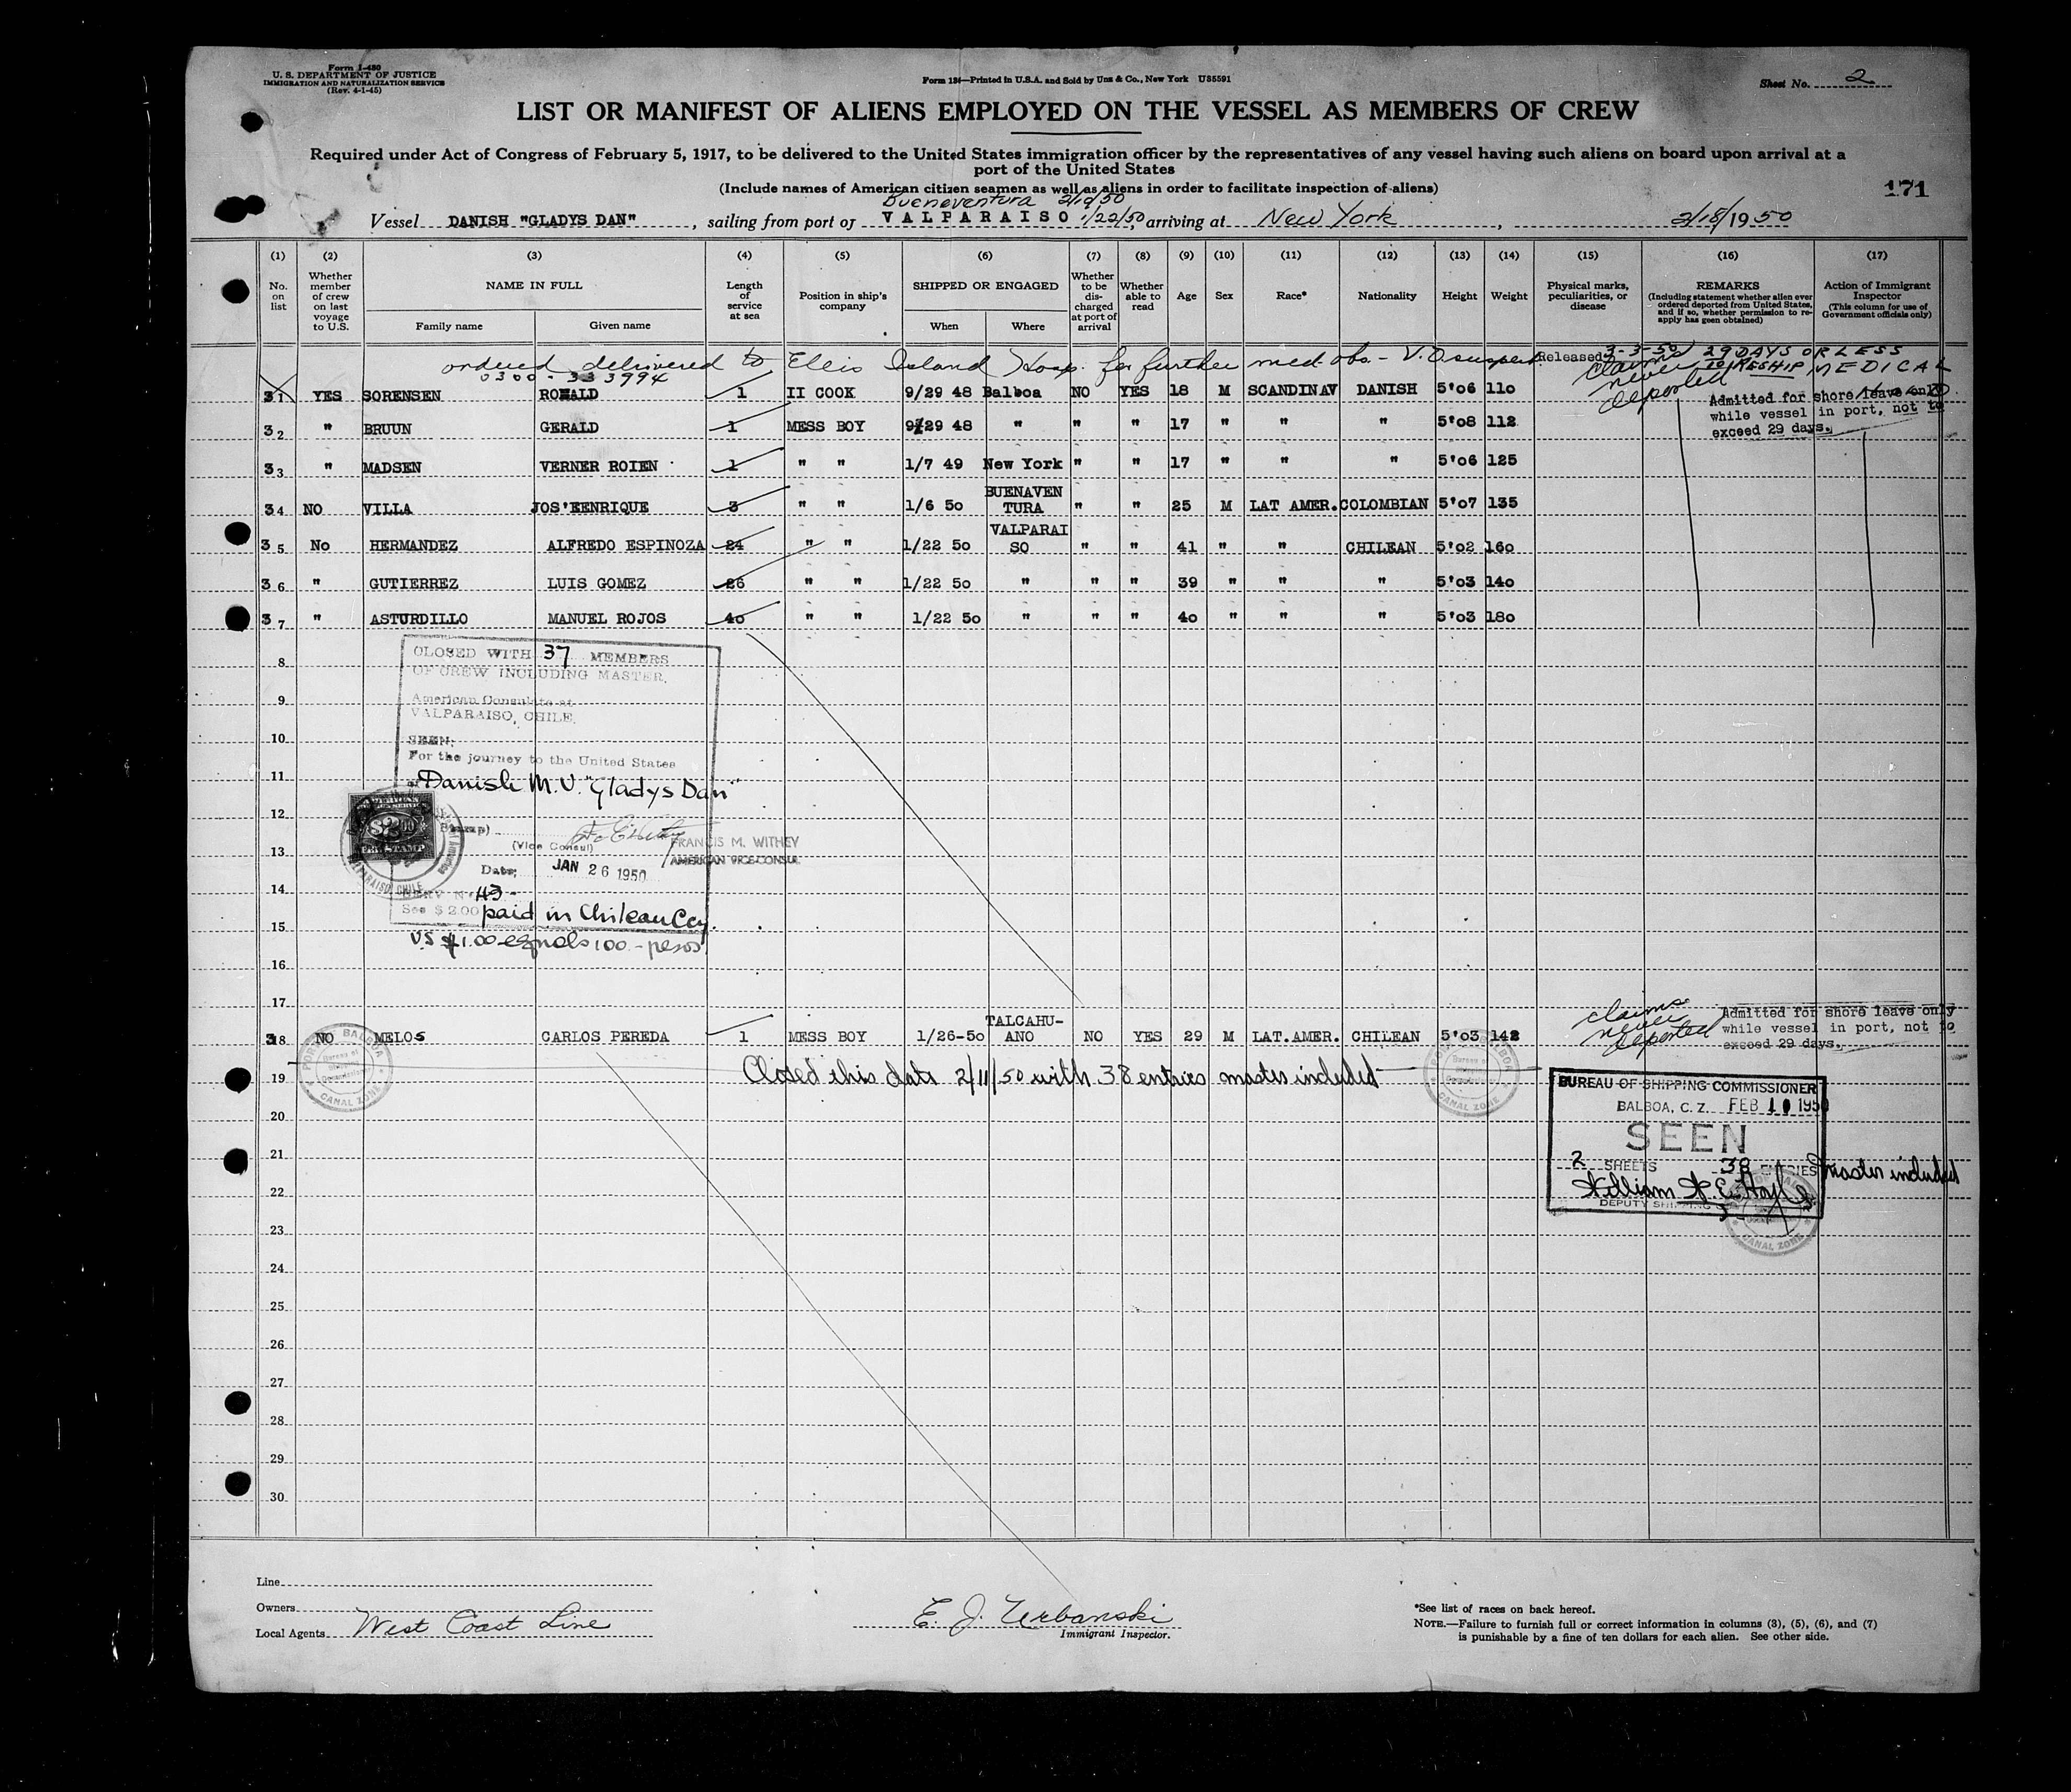 Form I-480
U. S. DEPARTMENT OF JUSTICE
IMMIGRATION AND NATURALIZATION SERVICE
(Rev. 4-1-45)
Form 134—Printed in U.S.A. and Sold by Unz & Co., New York U85591
Sheet No. 2
LIST OR MANIFEST OF ALIENS EMPLOYED ON THE VESSEL AS MEMBERS OF CREW
Required under Act of Congress of February 5, 1917, to be delivered to the United States immigration officer by the representatives of any vessel having such aliens on board upon arrival at a
port of the United States
(Include names of American citizen seamen as well as aliens in order to facilitate inspection of aliens)
171
Bueneventura
Vessel DANISH "GLADYS DAN", sailing from port of VALPARAISO 1/22/50, arriving at New York, 2/18/1950
(1) (2) (3) (4) (5) (6) (7) (8) (9) (10) (11) (12) (13) (14) (15) (16) (17)
No. on list
Whether member of crew on last voyage to U.S.
NAME IN FULL
Family name
Given name
Length of service at sea
Position in ship's company
SHIPPED OR ENGAGED
When
Where
Whether to be discharged at port of arrival
Whether able to read
Age
Sex
Race*
Nationality
Height
Weight
Physical marks, peculiarities, or disease
REMARKS
(Including statement whether alien ever ordered deported from United States, and if so, whether permission to re-apply has been obtained)
Action of Immigrant Inspector
(This column for use of Government officials only)
ordered delivered to Ellis Island Hosp. for further med. obs - V.D. suspect. Released 3-3-50 29 DAYS OR LESS
0300-333994 TO RESHIP MEDICAL
31 YES SORENSEN RONALD 1 II COOK 9/29 48 Balboa NO YES 18 M SCANDINAV DANISH 5'06 110 claims never deported
Admitted for shore leave only
while vessel in port, not to
exceed 29 days.
32 " BRUUN GERALD 1 MESS BOY 9/29 48 " " " 17 " " " 5'08 112
33 " MADSEN VERNER ROIEN 1 " " 1/7 49 New York " " 17 " " " 5'06 125
34 NO VILLA JOS'EENRIQUE 3 " " 1/6 50 BUENAVENTURA " " 25 M LAT AMER. COLOMBIAN 5'07 135
35 No HERMANDEZ ALFREDO ESPINOZA 24 " " 1/22 50 VALPARAISO " " 41 " " CHILEAN 5'02 160
36 " GUTIERREZ LUIS GOMEZ 26 " " 1/22 50 " " " 39 " " " 5'03 140
37 " ASTURDILLO MANUEL ROJOS 40 " " 1/22 50 " " " 40 " " " 5'03 180
8
CLOSED WITH 37 MEMBERS
OF CREW INCLUDING MASTER.
9
American Consulate at
VALPARAISO, CHILE.
10
SEEN:
For the journey to the United States
11
of Danish M.V. "Gladys Dan"
12
AMERICAN
$2.00
FEE STAMP
(Vice Consul)
FRANCIS M. WITHEY
AMERICAN VICE CONSUL
13
Date: JAN 26 1950
VALPARAISO, CHILE
14
43-
$2.00 paid in Chilean Ccy.
15
U.S $1.00 equals 100.- pesos
16
17
38 NO MELOS CARLOS PEREDA 1 MESS BOY 1/26-50 TALCAHUANO NO YES 29 M LAT.AMER. CHILEAN 5'03 142 claims never deported
Admitted for shore leave only
while vessel in port, not to
exceed 29 days.
PORT OF BALBOA
CANAL ZONE
19
Closed this date 2/11/50 with 38 entries master included
BUREAU OF SHIPPING COMMISSIONER
BALBOA, C. Z. FEB 10 1950
20
SEEN
21
2 SHEETS 38 ENTRIES master included
22
DEPUTY SHIPPING
CANAL ZONE
23
24
25
26
27
28
29
30
Line
Owners
Local Agents West Coast Line
E. J. Urbanski
Immigrant Inspector.
*See list of races on back hereof.
NOTE.—Failure to furnish full or correct information in columns (3), (5), (6), and (7)
is punishable by a fine of ten dollars for each alien. See other side.